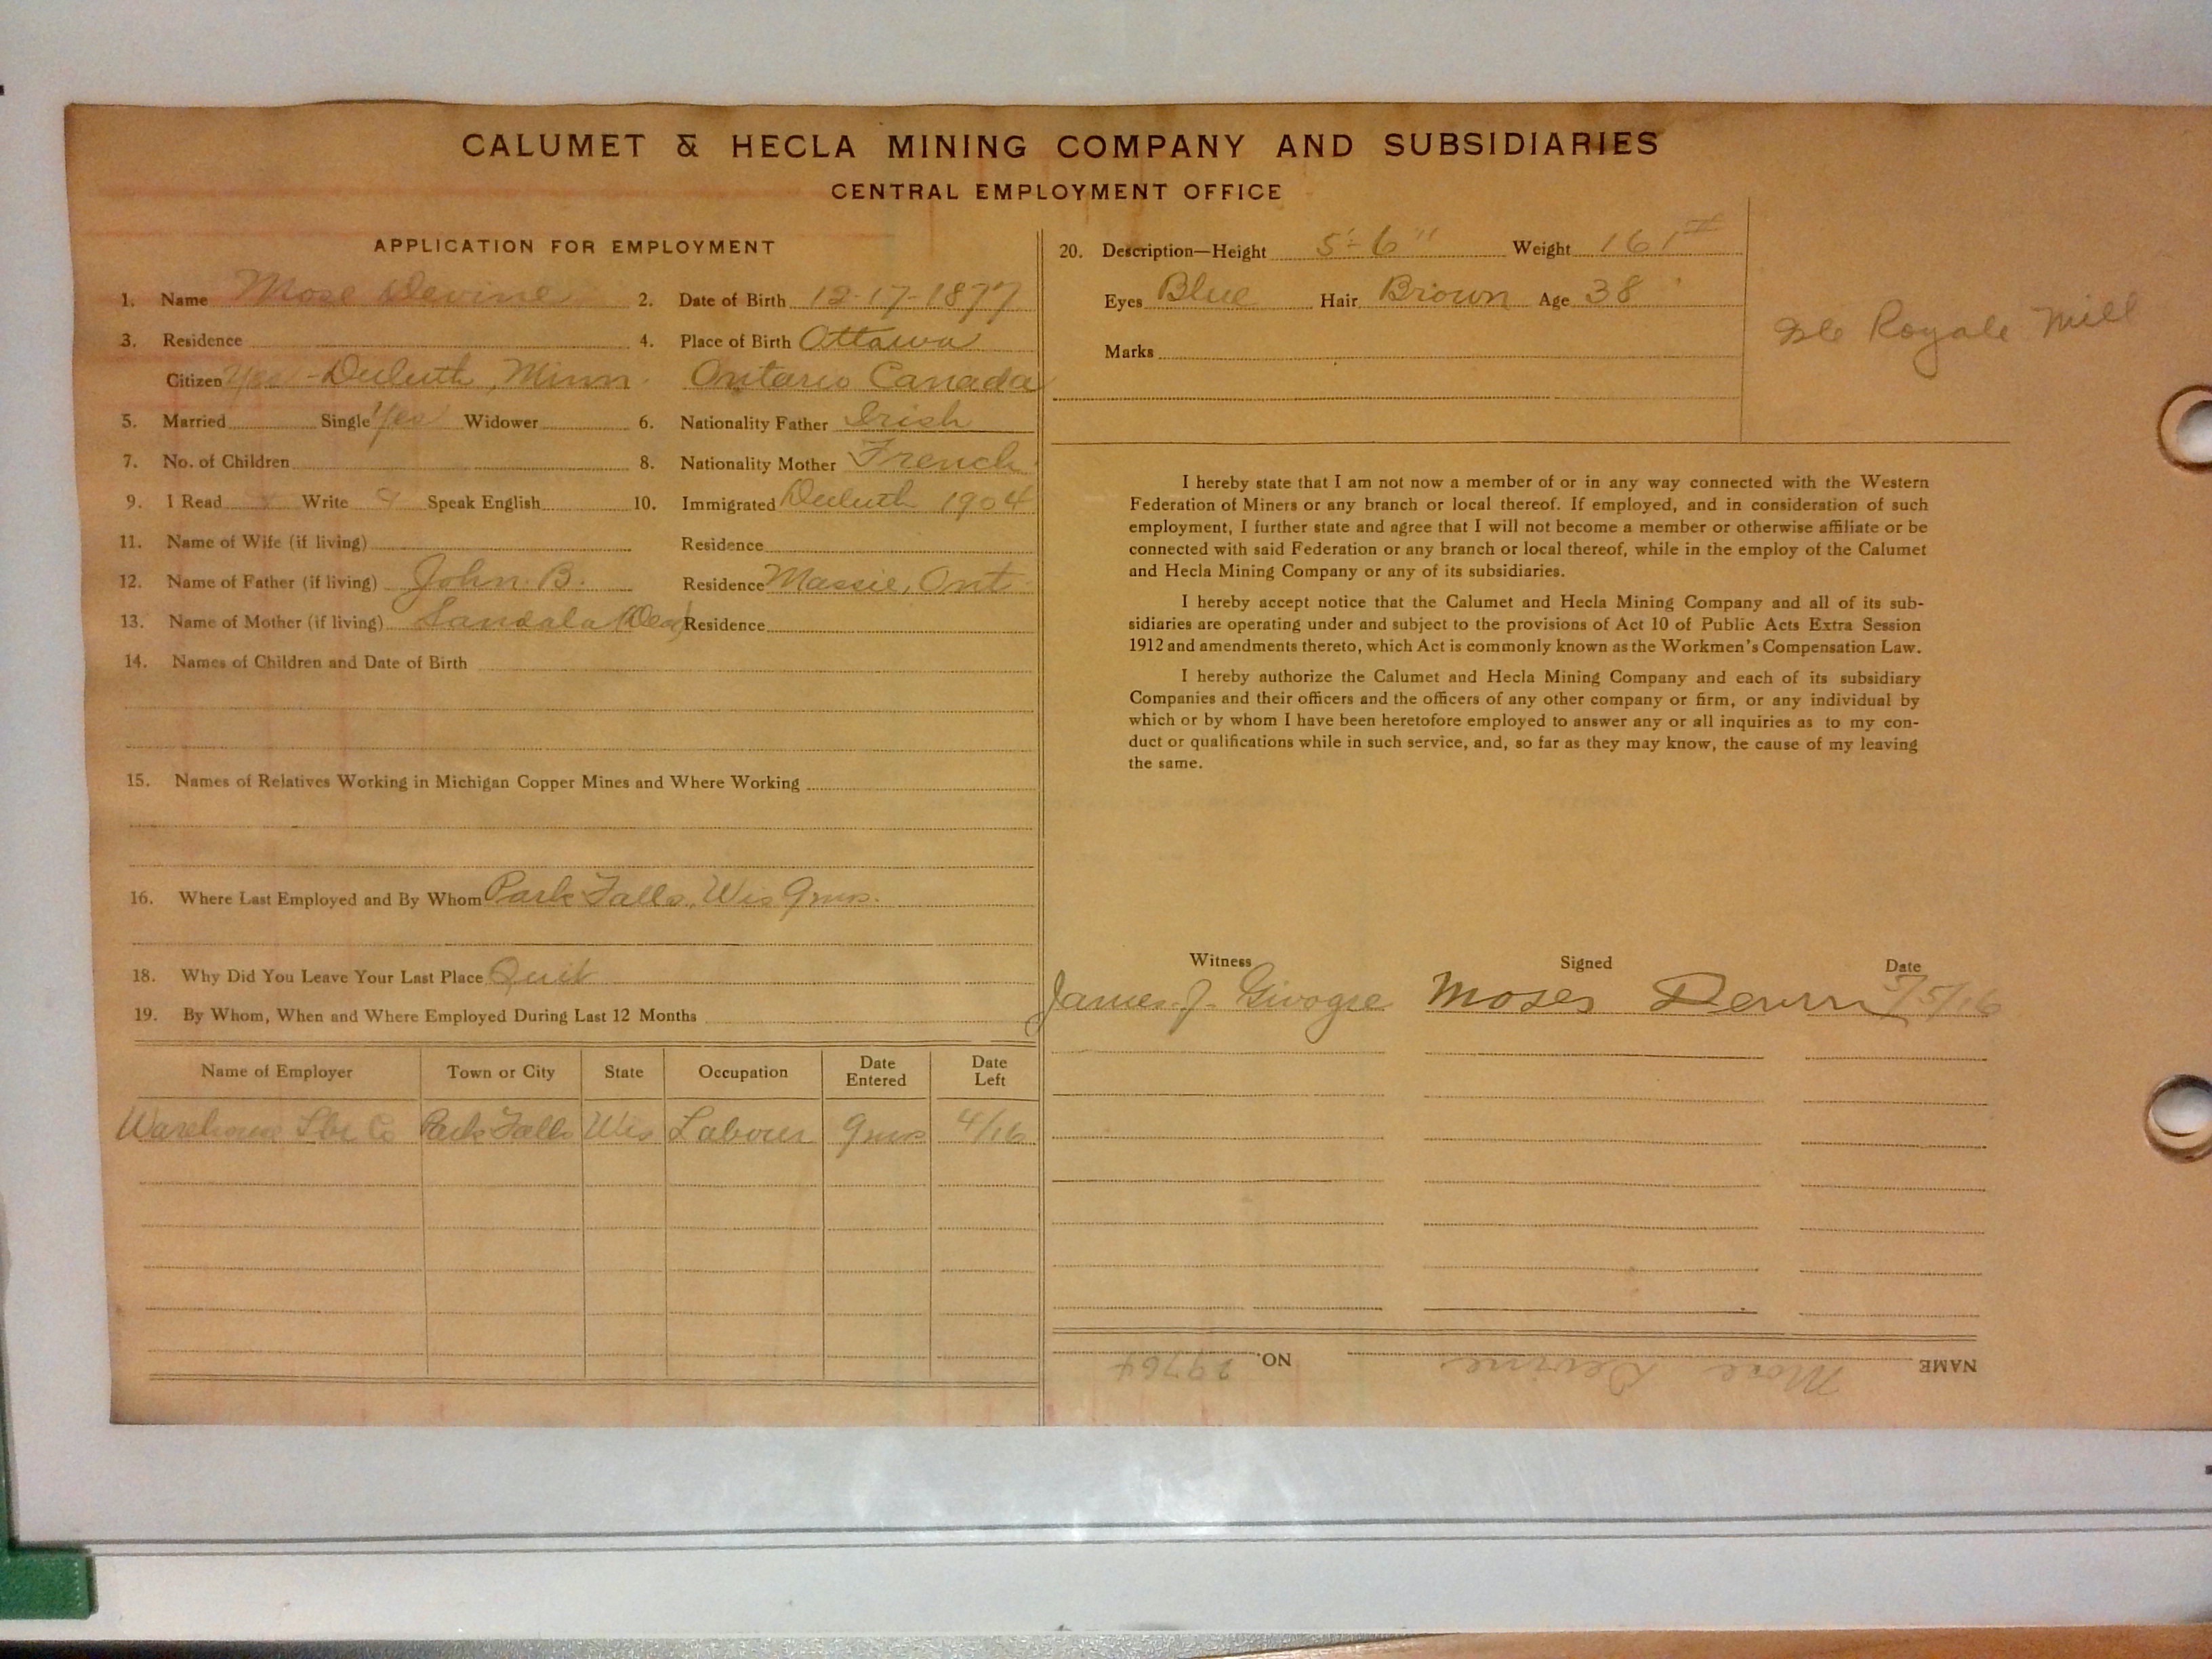 CALUMET & HECLA MINING COMPANY AND SUBSIDIARIES
CENTRAL EMPLOYMENT OFFICE
APPLICATION FOR EMPLOYMENT
1. Name Mose Devine 2. Date of Birth 12-17-1877
3. Residence 4. Place of Birth Ottawa
Citizen Yes - Duluth, Minn. Ontario Canada
5. Married Single Yes Widower 6. Nationality Father Irish
7. No. of Children 8. Nationality Mother French
9. I Read Write Speak English 10. Immigrated Duluth 1904
11. Name of Wife (if living) Residence
12. Name of Father (if living) John B. Residence Massie, Ont
13. Name of Mother (if living) (Dead) Residence
14. Names of Children and Date of Birth
15. Names of Relatives Working in Michigan Copper Mines and Where Working
16. Where Last Employed and By Whom Park Falls, Wis 9mos.
18. Why Did You Leave Your Last Place Quit
19. By Whom, When and Where Employed During Last 12 Months
Name of Employer Town or City State Occupation Date Entered Date Left
Park Falls Wis Labour 9mos 4/16
20. Description—Height 5'-6" Weight 161#
Eyes Blue Hair Brown Age 38
Marks
Isle Royale Mill
I hereby state that I am not now a member of or in any way connected with the Western
Federation of Miners or any branch or local thereof. If employed, and in consideration of such
employment, I further state and agree that I will not become a member or otherwise affiliate or be
connected with said Federation or any branch or local thereof, while in the employ of the Calumet
and Hecla Mining Company or any of its subsidiaries.
I hereby accept notice that the Calumet and Hecla Mining Company and all of its sub-
sidiaries are operating under and subject to the provisions of Act 10 of Public Acts Extra Session
1912 and amendments thereto, which Act is commonly known as the Workmen's Compensation Law.
I hereby authorize the Calumet and Hecla Mining Company and each of its subsidiary
Companies and their officers and the officers of any other company or firm, or any individual by
which or by whom I have been heretofore employed to answer any or all inquiries as to my con-
duct or qualifications while in such service, and, so far as they may know, the cause of my leaving
the same.
Witness Signed Date
James J. Moses Devine 5/5/16
NAME Mose Devine NO. 29764